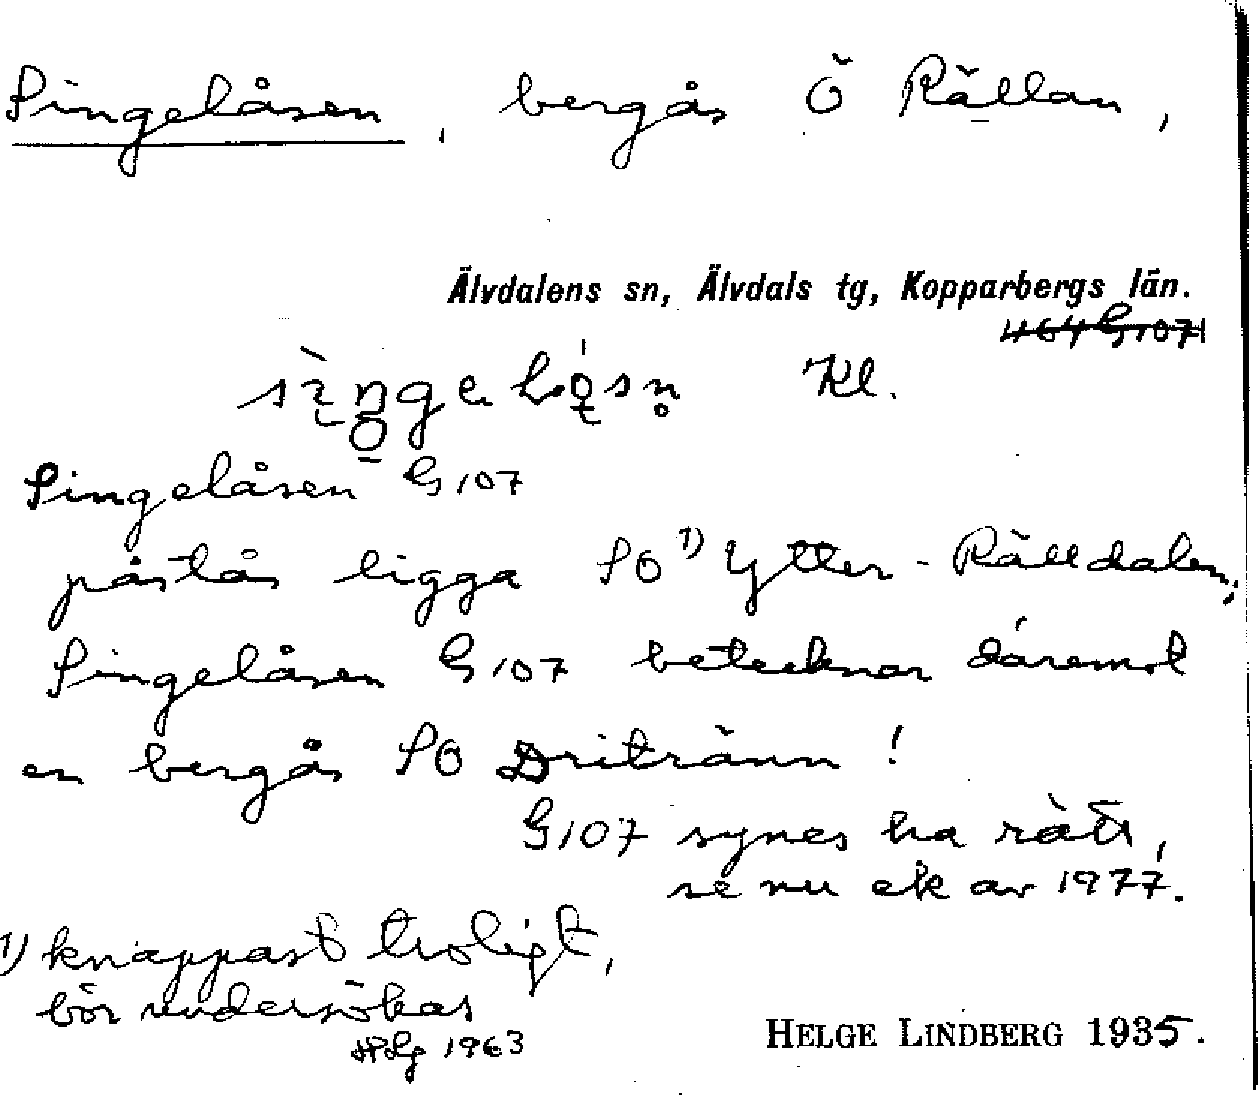 Singelåsen, bergås Ö Rällan,
Älvdalens sn, Älvdals tg, Kopparbergs län.
G107
Kl.
Singelåsen G107
påstås ligga SO 1) Ytter-Rälldalen,
Singelåsen G107 betecknar däremot
en bergås SO Driträun!
G107 synes ha rätt,
se nu ek av 1977.
1) knappast troligt,
bör undersökas
1963
HELGE LINDBERG 1935.